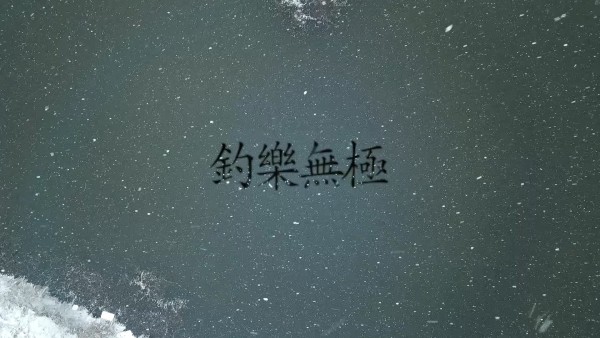 釣樂無極